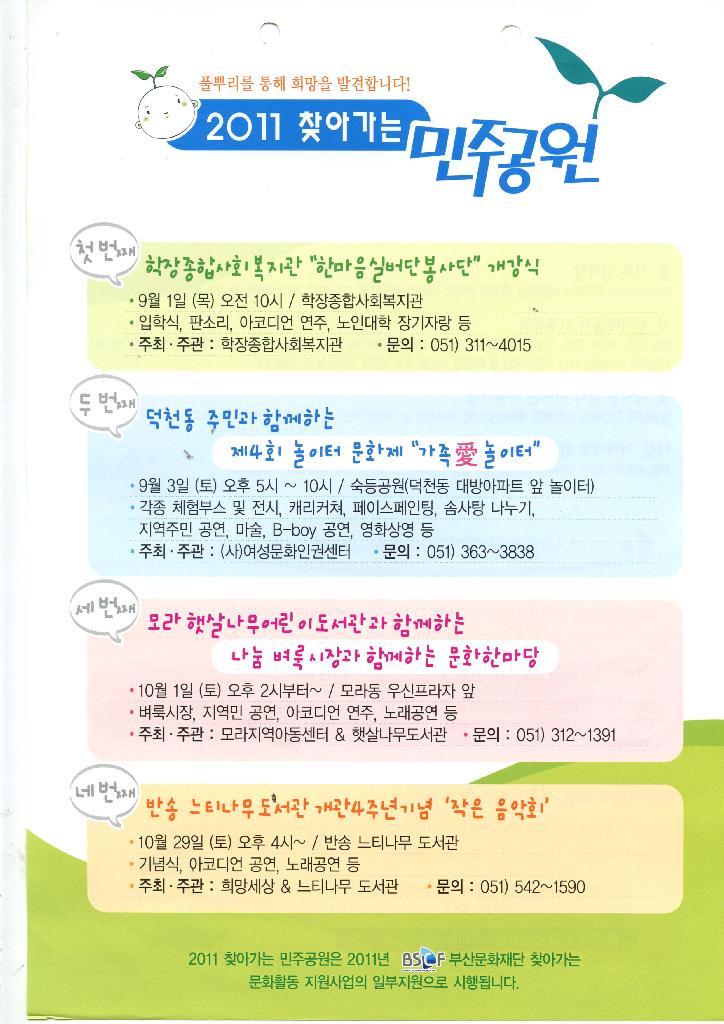 풀뿌리를 통해 희망을 발견합니다!
2011 찾아가는 민주공원
첫번째
학장종합사회복지관 "한마음실버단봉사단" 개강식
• 9월 1일 (목) 오전 10시 / 학장종합사회복지관
• 입학식, 판소리, 아코디언 연주, 노인대학 장기자랑 등
• 주최·주관 : 학장종합사회복지관 • 문의 : 051) 311~4015
두번째
덕천동 주민과 함께하는
제4회 놀이터 문화제 "가족愛놀이터"
• 9월 3일 (토) 오후 5시 ~ 10시 / 숙등공원(덕천동 대방아파트 앞 놀이터)
• 각종 체험부스 및 전시, 캐리커쳐, 페이스페인팅, 솜사탕 나누기,
지역주민 공연, 마술, B-boy 공연, 영화상영 등
• 주최·주관 : (사)여성문화인권센터 • 문의 : 051) 363~3838
세번째
모라 햇살나무어린이도서관과 함께하는
나눔 벼룩시장과 함께하는 문화한마당
• 10월 1일 (토) 오후 2시부터~ / 모라동 우신프라자 앞
• 벼룩시장, 지역민 공연, 아코디언 연주, 노래공연 등
• 주최·주관 : 모라지역아동센터 & 햇살나무도서관 • 문의 : 051) 312~1391
네번째
반송 느티나무도서관 개관4주년기념 '작은 음악회'
• 10월 29일 (토) 오후 4시~ / 반송 느티나무 도서관
• 기념식, 아코디언 공연, 노래공연 등
• 주최·주관 : 희망세상 & 느티나무 도서관 • 문의 : 051) 542~1590
2011 찾아가는 민주공원은 2011년 BSCF 부산문화재단 찾아가는
문화활동 지원사업의 일부지원으로 시행됩니다.